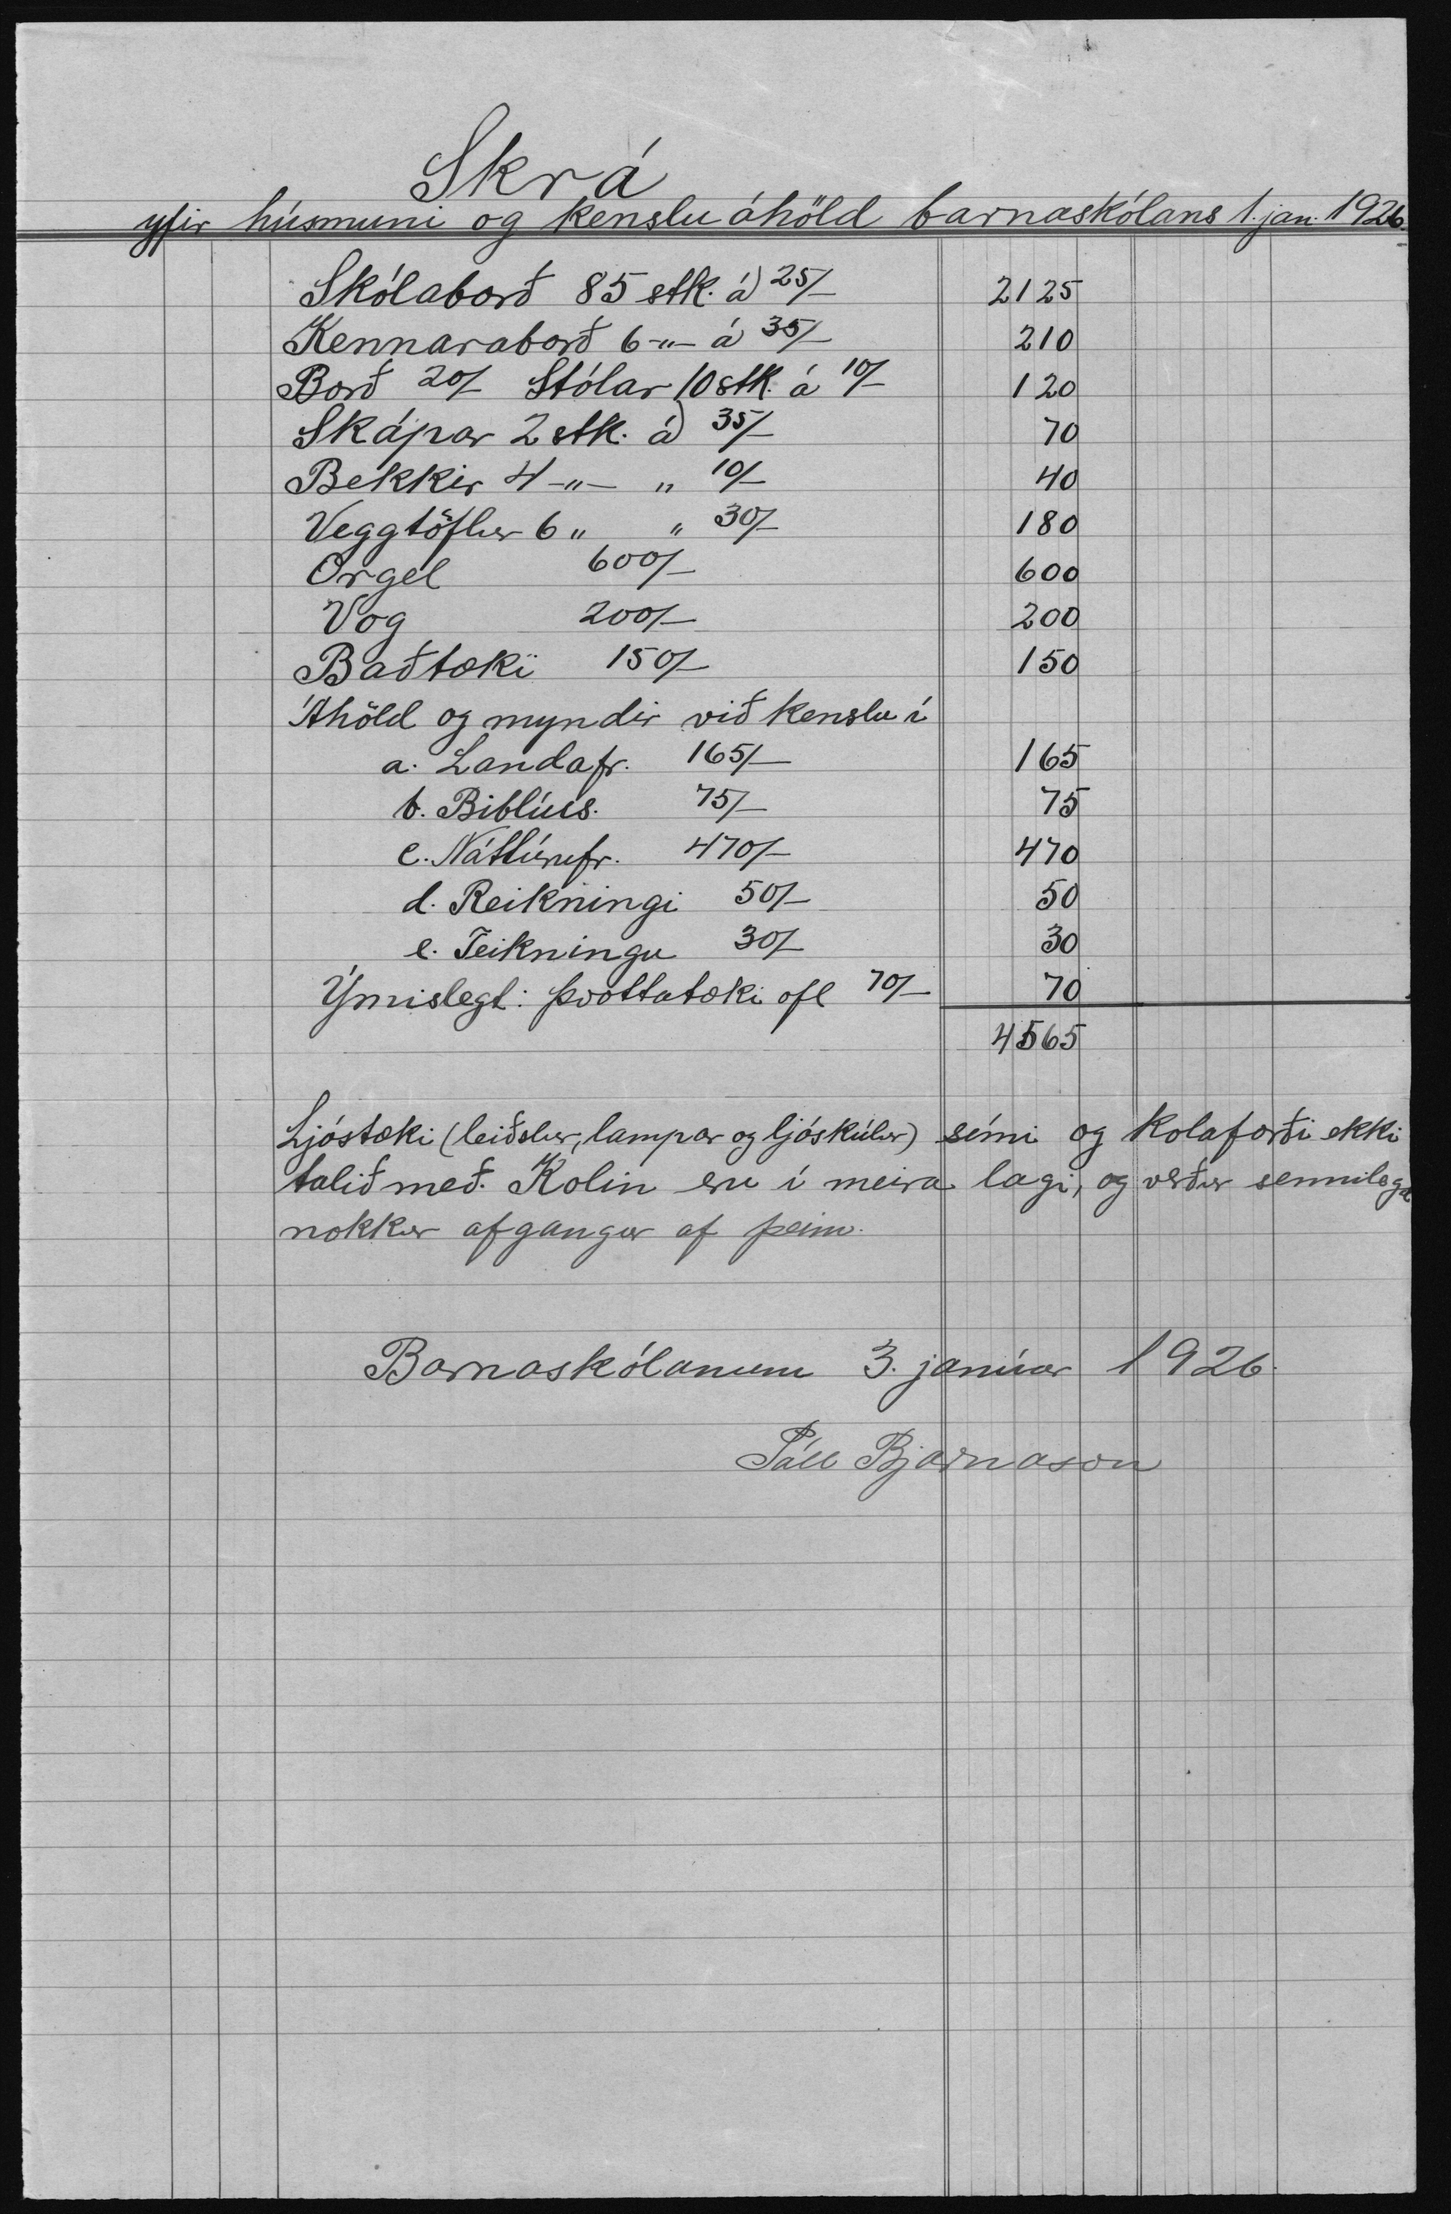 Skrá
yfir húsmuni og kensluáhöld barnaskólans 1. jan. 1926.
Skólaborð 85 stk. á 25/- 2125
Kennaraborð 6 -"- á 35/- 210
Borð 20/- Stólar 10 stk. á 10/- 120
Skápar 2 stk. á 35/- 70
Bekkir 4 -"- " 10/- 40
Veggtöflur 6 " " 30/- 180
Orgel 600/- 600
Vog 200/- 200
Baðtæki 150/- 150
Áhöld og myndir við kenslu í
a. Landafr. 165/- 165
b. Biblíus. 75/- 75
c. Náttúrufr. 470/- 470
d. Reikningi 50/- 50
e. Teikningu 30/- 30
Ýmislegt: þvottatæki ofl 70/- 70
4565
Ljóstæki (leiðslur, lampar og ljóskúlur) sími og kolaforði ekki
talið með. Kolin eru í meira lagi, og verður sennilega
nokkur afgangur af þeim.
Barnaskólanum 3. janúar 1926.
Páll Bjarnason